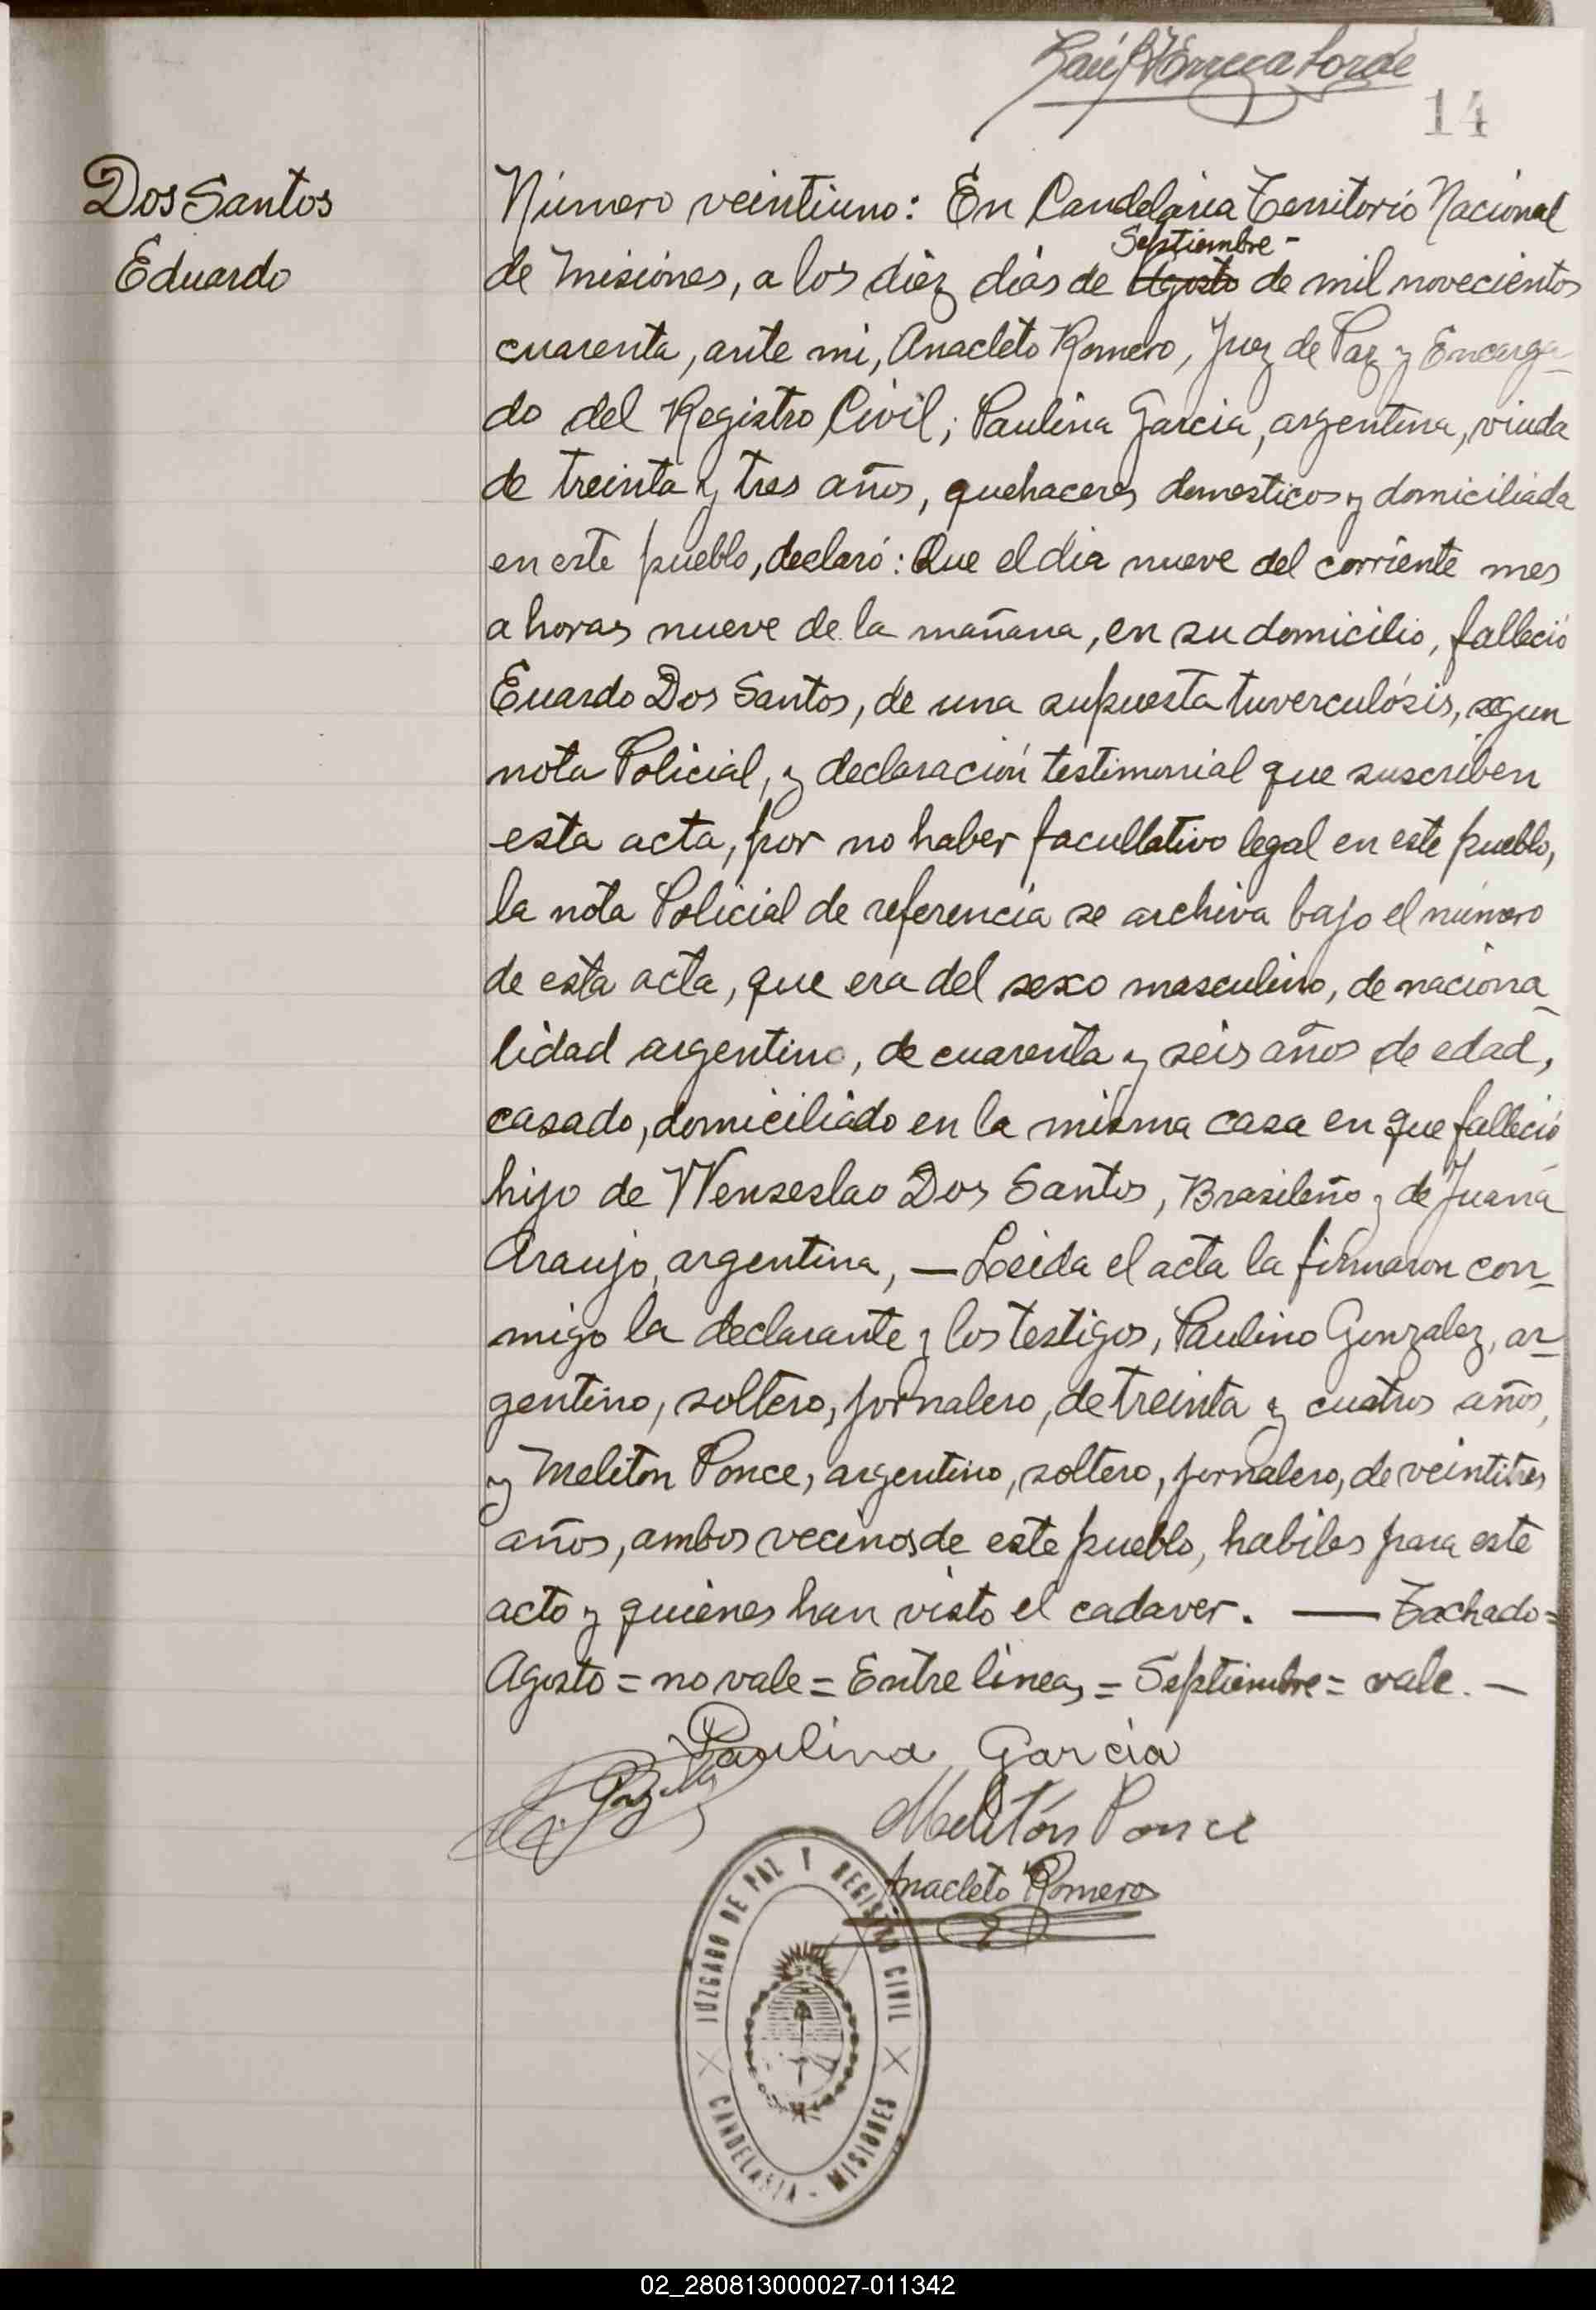 14
Dos Santos
Eduardo
Número veintiuno: En Candelaria Territorio Nacional
Septiembre -
de Misiones, a los diéz días de Agosto de mil novecientos
cuarenta, ante mi, Anacleto Romero, Juez de Paz y Encarga-
do del Registro Civil; Paulina Garcia, argentina, viuda
de treinta y tres años, quehaceres domesticos y domiciliada
en este pueblo, declaró: Que el dia nueve del corriente mes
a horas nueve de la mañana, en su domicilio, falleció
Euardo Dos Santos, de una supuesta tuverculósis, segun
nota Policial, y declaración testimonial que suscriben
esta acta, por no haber facultativo legal en este pueblo,
la nota Policial de referencia se archiva bajo el número
de esta acta, que era del sexo masculino, de naciona-
lidad argentino, de cuarenta y seis años de edad,
casado, domiciliado en la misma casa en que falleció
hijo de Wenseslao Dos Santos, Brasileño y de Juana
Araujo, argentina, — Leida el acta la firmaron con-
migo la declarante y los testigos, Paulino Gonzalez, ar-
gentino, soltero, jornalero, de treinta y cuatro años,
y Meliton Ponce, argentino, soltero, jornalero, de veintitres
años, ambos vecinos de este pueblo, habiles para este
acto y quienes han visto el cadaver. — Tachado=
Agosto = no vale = Entre lineas = Septiembre = vale. —
Paulina Garcia
Melitón Ponce
Anacleto Romero
JUZGADO DE PAZ Y REGISTRO CIVIL
CANDELARIA - MISIONES
02_280813000027-011342